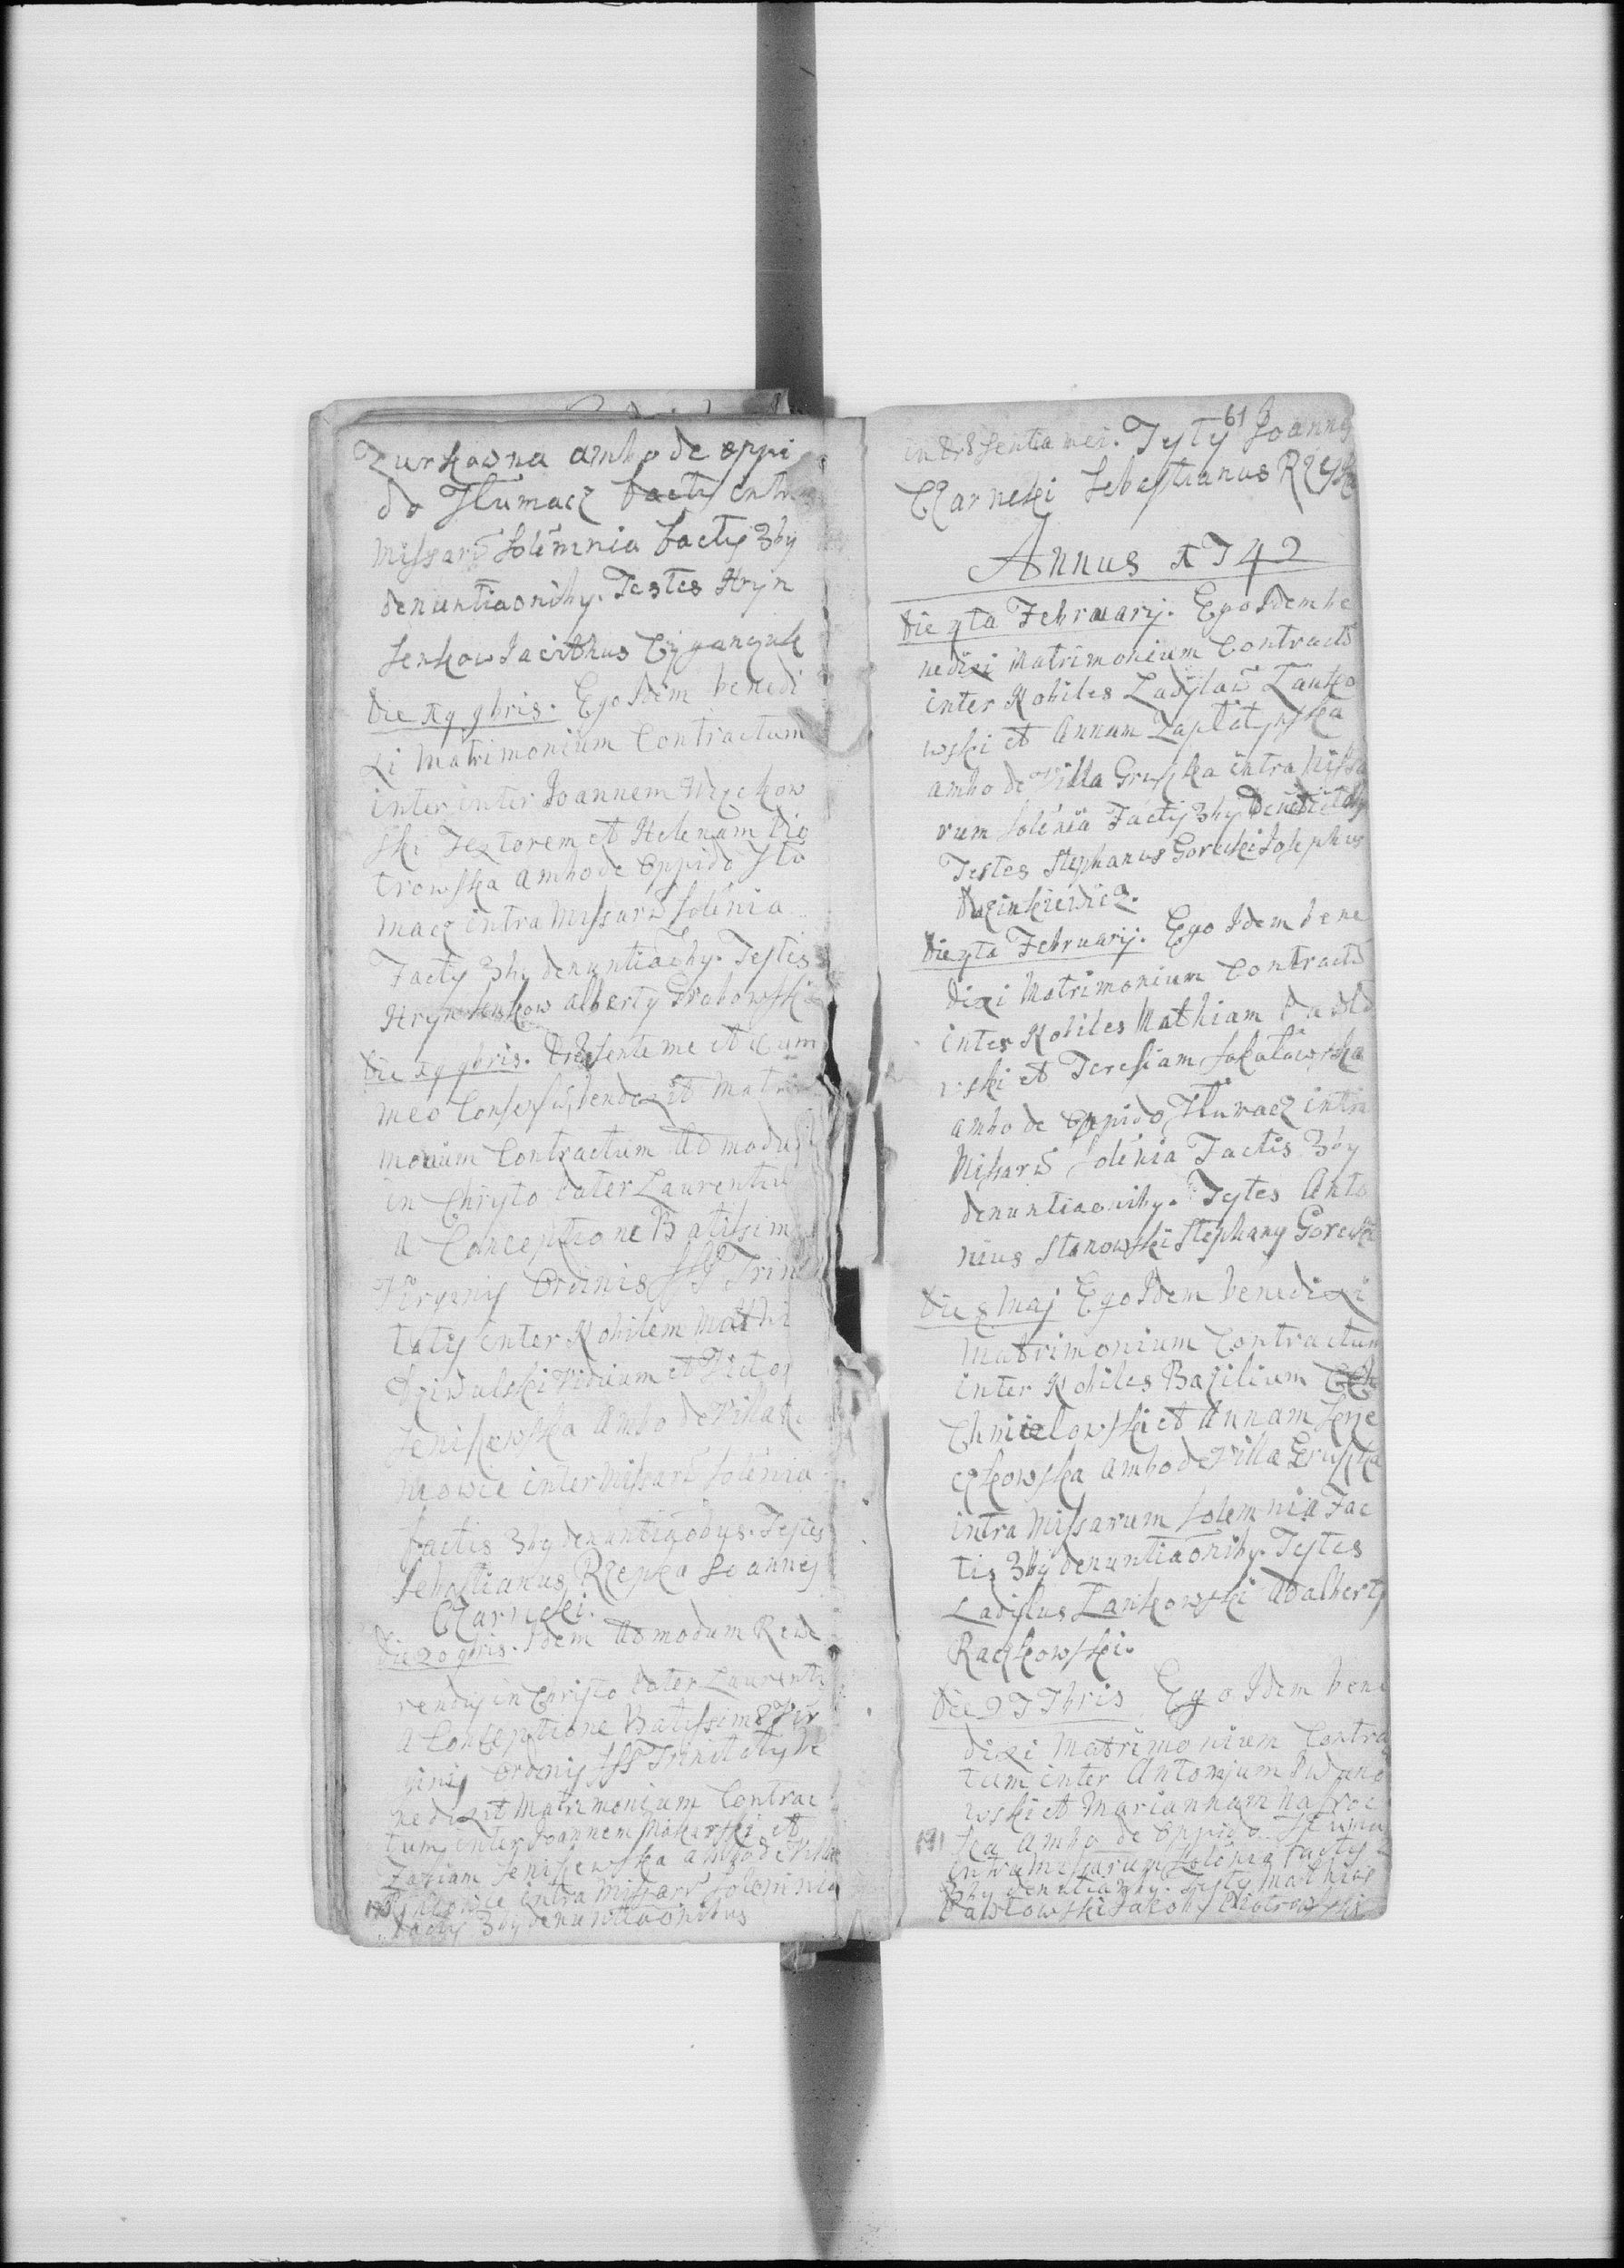 Zurkowna ambo de oppi
do Tlumacz factis intra
Missarū Solemnia factis 3by
denuntiaoniby. Testes Hryn
Senkow Iacinthus Cyganczuk
Die 19 9bris. Ego Idem benedi
xi Matrimonium Contractum
inter inter Joannem Węckow
ski Textorem et Helenam Pio
trowska ambo de oppido Tlu
macz intra Missarū Solēnia
Factis 3by denuntiaoby. Testes
Hryn Senkow Alberty Grabowski
Die 19 9bris. Presente me et cum
meo Consensu, bendixit Matri
monium Contractum Ad modu
in Christo Pater Laurentiu
a Conceptione Batissim
Virginis Ordinis SSS Trini
tatis inter Nobilem Mathi
Dziwulski Viduum et Victor
Seniszewska Ambo de Villa
mowie inter Missarū Solēnia
factis 3by denuntiaobus. Testes
Sebastianus Rzepka Joannes
Czarnecki.
Die 20 9bris. Idem Admodum Reve
rendus in Christo Pater Laurenti
a Conceptione Batissime Vir
ginis Ordinis SSS Trinitatis be
nedixit Matrimonium Contrac
tum inter Joannem Makarski et
Zofiam Seniszewska ambo de Villa
intra Missarū Solemnia
factis 3by denuntiaonibus
61
in presentia mei. Testes Joannes
Czarneski Sebastianus Rzepka
Annus 1742
Die 4ta Februarij. Ego Idem be
nedixi Matrimonium Contractū
inter Nobiles Ladislaū Zanko
wski et Annam Zaplatynska
ambo de Villa Gruszka intra Missa
rum Solēnia Factis 3by
Testes Stephanus Gorecki Josephus
Die 4ta Februarij. Ego Idem bene
dixi Matrimonium Contractū
inter Nobiles Mathiam Pawlo
wski et Teresiam Sokolowska
ambo de Oppido Tlumacz intra
Missarū Solēnia Factis 3by
denuntiaoniby. Testes Anto
nius Stanowski Stephany Gorecki
Die 8 Maj Ego Idem benedixi
Matrimonium Contractum
inter Nobiles Bazilium
Chmielowski et Annam Senie
czkowska ambo de Villa Gruszka
intra Missarum Solemnia Fac
tis 3by denuntiaoniby. Testes
Ladislus Zankowski Adalberty
Raczkowski.
Die 27 7bris Ego Idem bene
dixi Matrimonium Contrac
tum inter Antonium Iwano
wski et Mariannam Nawroc
191 ka ambo de oppido Tluma
intra Missarum Solēnia factis
3by denutiaoby. Testes Mathias
Pawlowski Jakoby Piotrowski